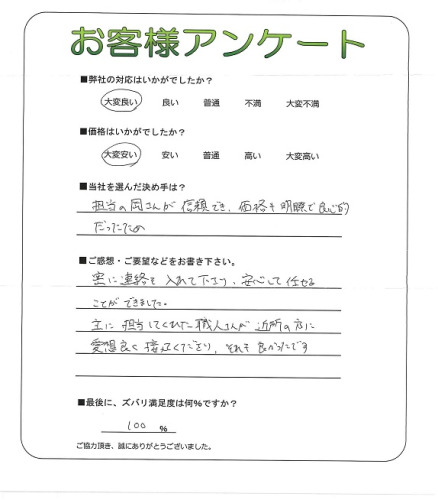 お客様アンケート
■弊社の対応はいかがでしたか?
大変良い 良い 普通 不満 大変不満
■価格はいかがでしたか?
大変安い 安い 普通 高い 大変高い
■当社を選んだ決め手は?
担当の岡さんが信頼でき、価格も明瞭で良心的
だったため
■ご感想・ご要望などをお書き下さい。
密に連絡を入れて下さり、安心して任せる
ことができました。
主に担当してくれた職人さんが近所の方に
愛想良く接してくださり、それも良かったです
■最後に、ズバリ満足度は何%ですか?
100 %
ご協力頂き、誠にありがとうございました。